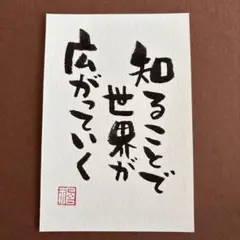 知ることで
世界が
広がっていく